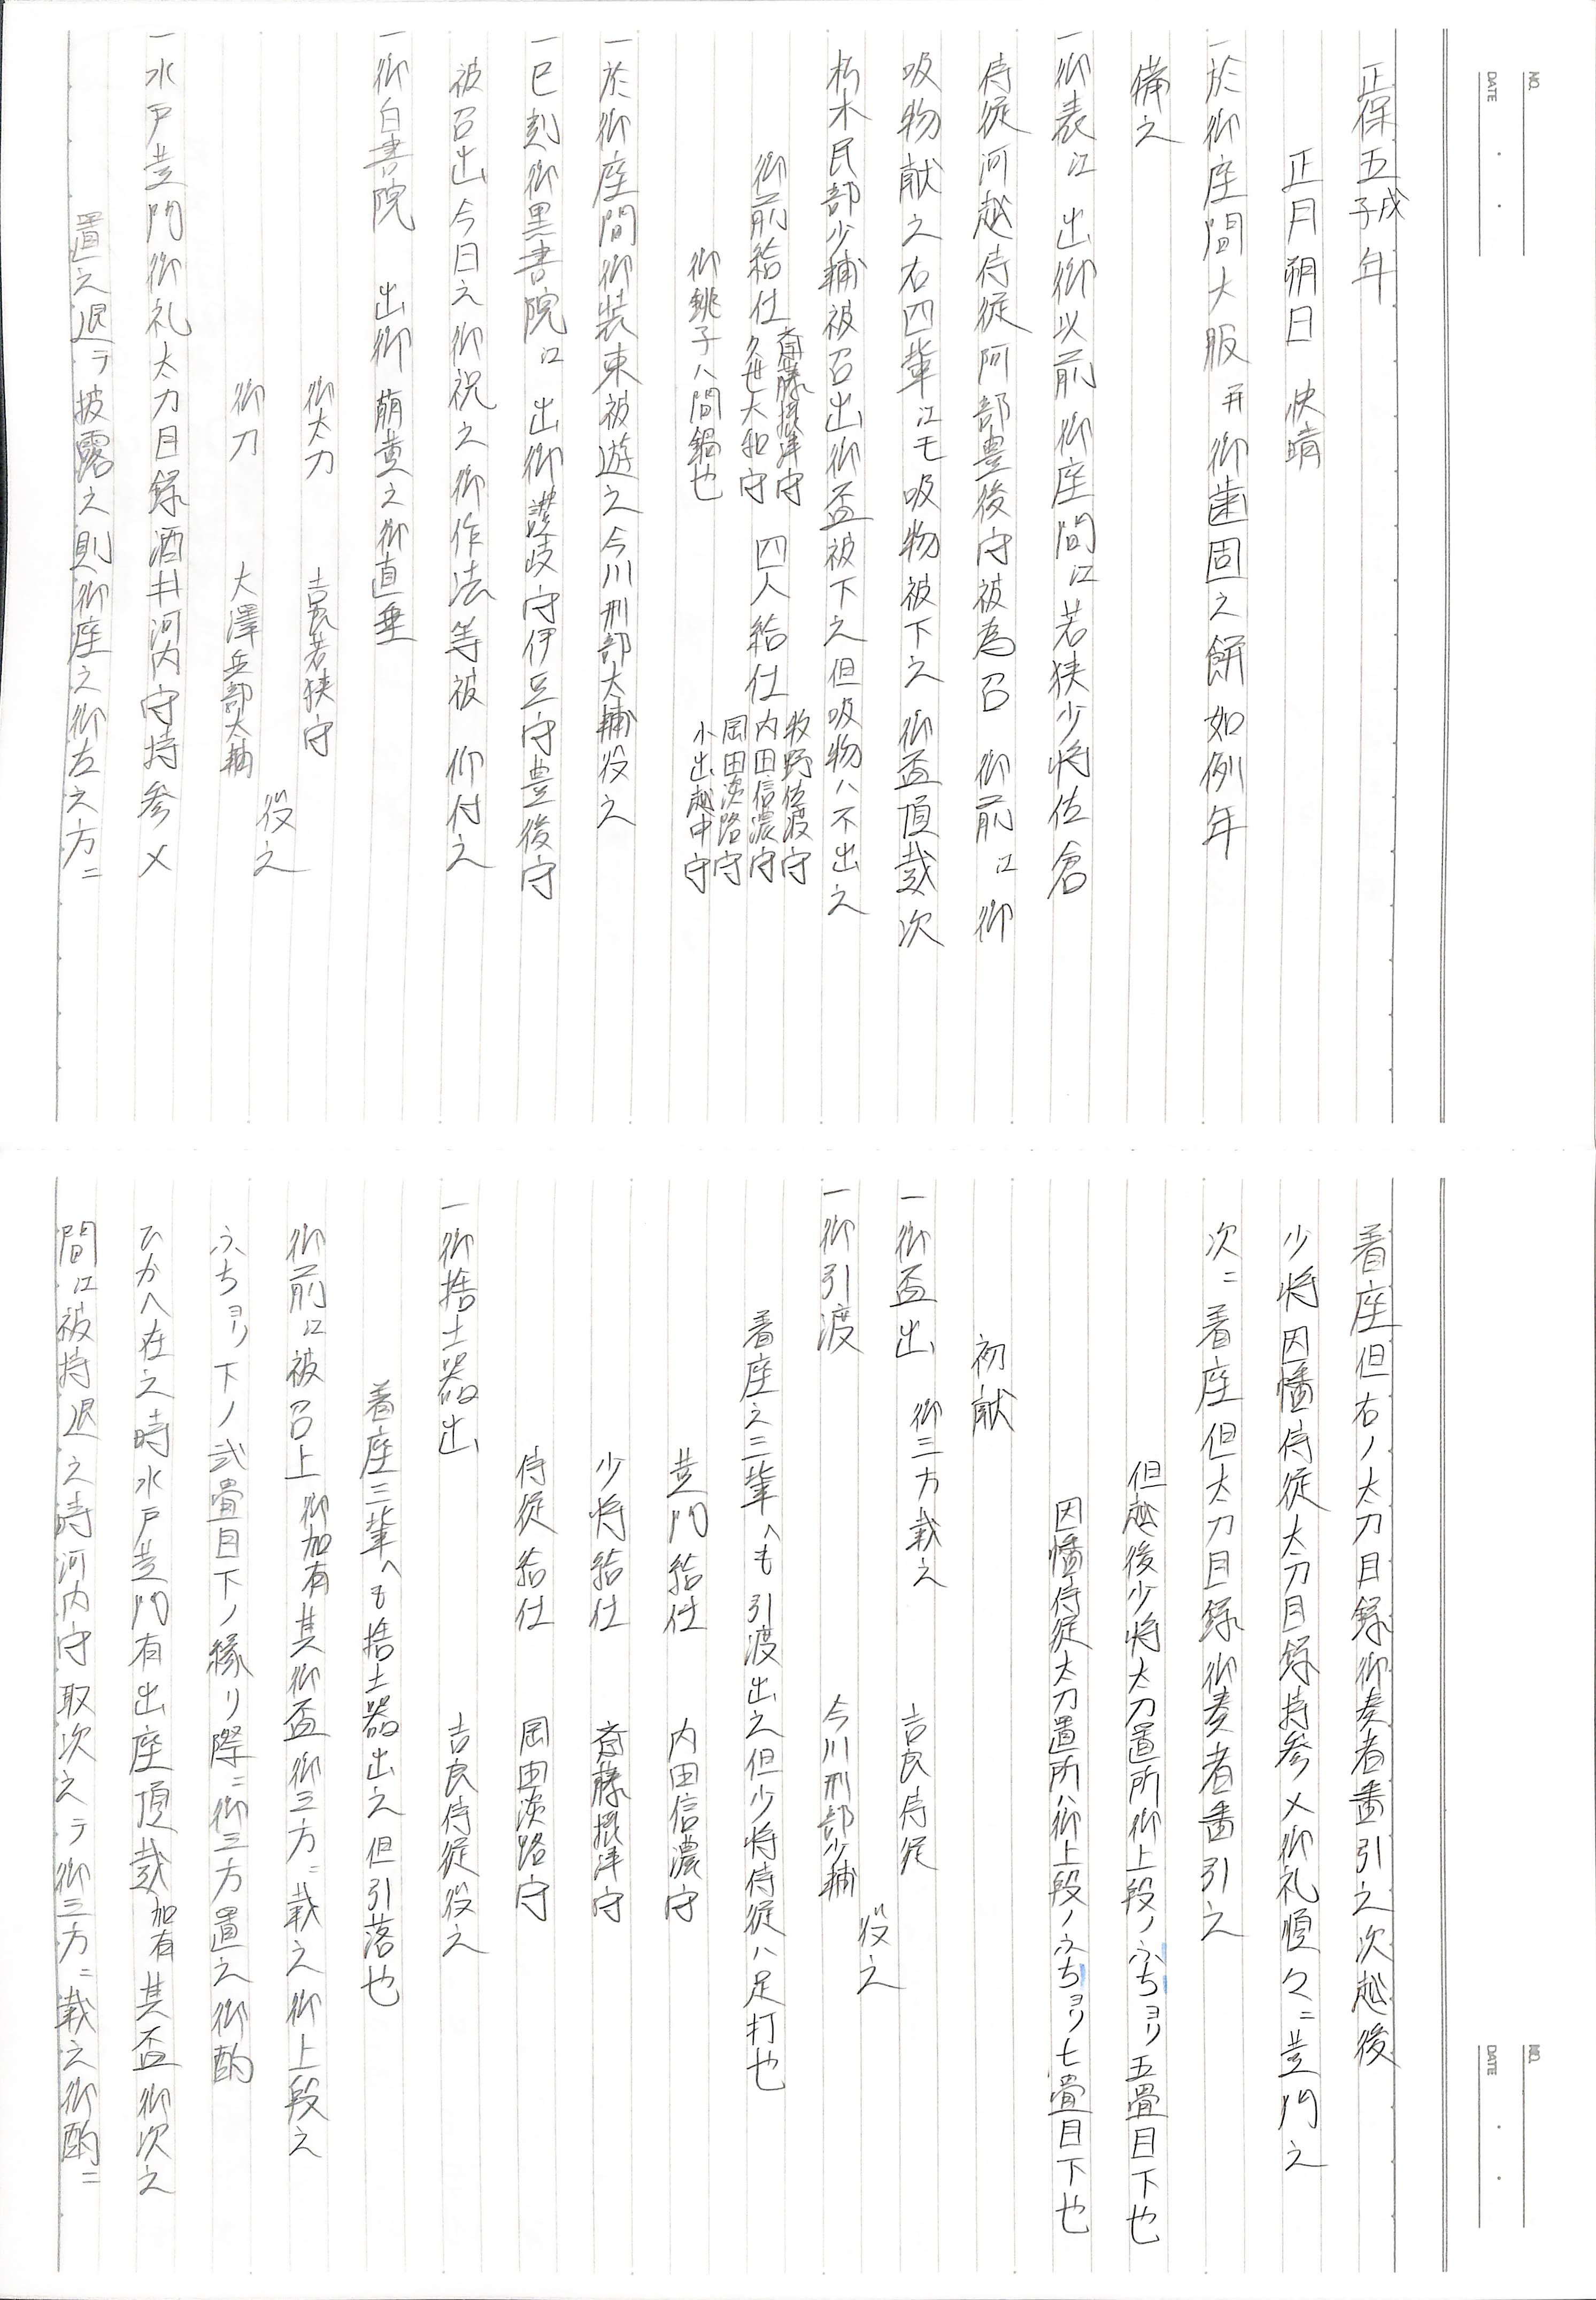 NO.
DATE
正保五戊子年
正月朔日 快晴
一於御座間大服并御歯固之餅如例年
備之
一御表江 出御以前御座間江若狭少将佐倉
侍従河越侍従阿部豊後守被為召 御前江御
吸物献之右四輩江モ吸物被下之御盃頂戴次
朽木民部少輔被召出御盃被下之但吸物ハ不出之
御前給仕 斎藤摂津守 久世大和守 四人給仕 牧野佐渡守 内田信濃守 岡田淡路守 小出越中守
御銚子ハ間鍋也
一於御座間御装束被遊之今川刑部大輔役之
一巳刻御黒書院江 出御讃岐守伊豆守豊後守
被召出今日之御祝之御作法等被 仰付之
一御白書院 出御 萠黄之御直垂
御太刀 吉良若狭守
御刀 大澤兵部大輔
役之
一水戸黄門御礼太刀目録酒井河内守持参〆
置之退テ披露之則御座之御左之方ニ
NO.
DATE
着座但右ノ太刀目録御奏者番引之次越後
少将因幡侍従太刀目録持参〆御礼順々ニ黄門之
次ニ着座但太刀目録御奏者番引之
但越後少将太刀置所御上段ノふちヨリ五畳目下也
因幡侍従太刀置所ハ御上段ノふちヨリ七畳目下也
初献
一御盃出 御三方載之 吉良侍従
一御引渡 今川刑部少輔
役之
着座之三輩へも引渡出之但少将侍従ハ足打也
黄門給仕 内田信濃守
少将給仕 斎藤摂津守
侍従給仕 岡田淡路守
一御捨土器出 吉良侍従役之
着座三輩へも捨土器出之但引落也
御前江被召上 御加有其御盃御三方ニ載之御上段之
ふちヨリ下ノ弐畳目下ノ縁リ際ニ御三方置之御酌
ひかへ在之時水戸黄門有出座頂戴 加有其盃御次之
間江被持退之時河内守取次之テ御三方ニ載之御酌ニ